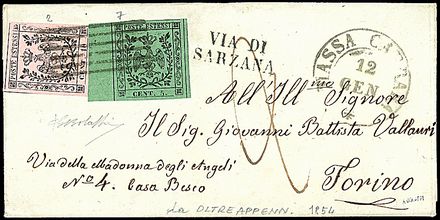 2 7
POSTE ESTENSI POSTE ESTENSI
CENT. 5.
VIA DI
SARZANA
MASSA CARRARA
12
GEN
All' Ill.mo Signore
Il Sig. Giovanni Battista Vallauri
Via della Madonna degli Angeli
No 4. Casa Besio
Torino
La OLTREAPPENN. 1854